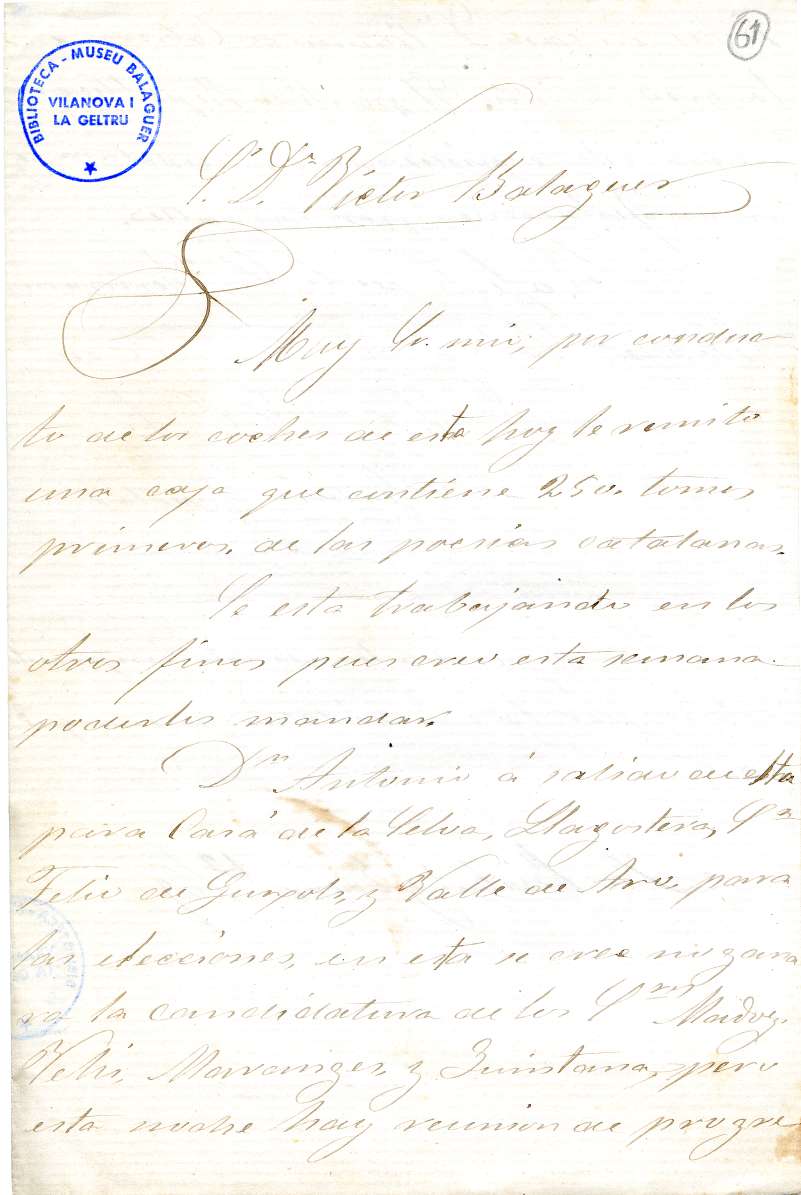 61
BIBLIOTECA - MUSEU BALAGUER
VILANOVA I
LA GELTRU
S. Dn. Victor Balaguer
Muy Sr. mio; por conduc-
to de los coches de esta hoy le remito
una caja que contiene 250. tomos
primeros, de las poesias catalanas.
Se esta trabajando en los
otros finos pues creo esta semana
poderles mandar.
Dn Antonio á salido de esta
para Casá de la Selva, Llagostera, Sn
Feliu de Guixols, y Valle de Aro, para
las elecciones, en esta se cree no gana
ra la candidatura de los Sres Madoz,
Marranges, y Quintana, pero
esta noche hay reunion de progre